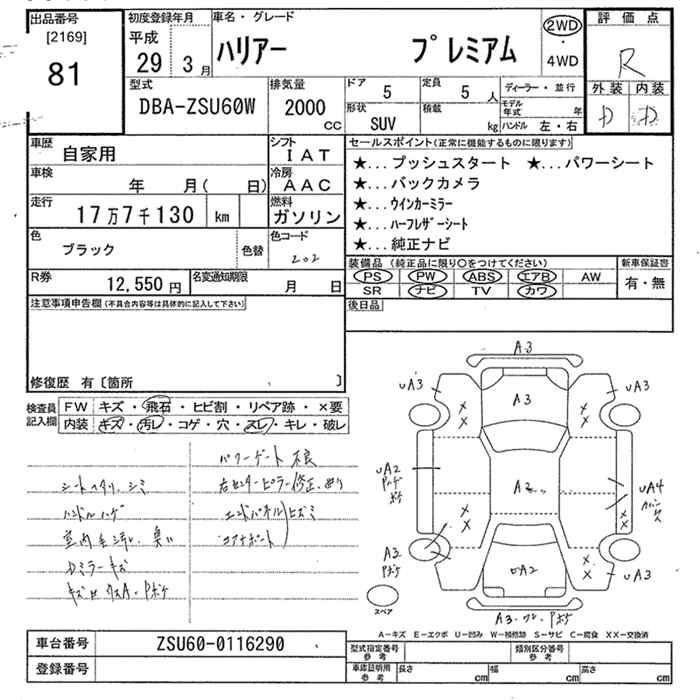 出品番号
[2169]
81
初度登録年月
平成
29 3月
車名・グレード
ハリアー プレミアム
2WD
・
4WD
評価点
R
外装 内装
D D
型式
DBA-ZSU60W
排気量
2000
CC
ドア
5
定員
5 人
形状
SUV
積載
kg
ディーラー・並行
モデル年式 年
ハンドル 左・右
車歴
自家用
シフト
IAT
車検
年 月( 日)
冷房
AAC
走行
17万7千130 km
燃料
ガソリン
色
ブラック
色替
色コード
202
R券
12,550円
名変通知期限
月 日
セールスポイント(正常に機能するものに限ります)
★...プッシュスタート ★...パワーシート
★...バックカメラ
★...ウインカーミラー
★...ハーフレザーシート
★...純正ナビ
装備品 (純正品に限り○をつけてください)
PS PW ABS エアB AW
SR ナビ TV カワ
新車保証書
有・無
後日品
注意事項申告欄(不具合内容等は具体的に記入して下さい)
修復歴 有〔箇所 〕
検査員記入欄
FW キズ・飛石・ヒビ割・リペア跡・×要
内装 キズ・汚レ・コゲ・穴・スレ・キレ・破レ
パワーゲート不良
シートヘタリ、シミ
右センターピラー修正、曲り
ハンドルハゲ
エンドパネル
ヒズミ
室内 汚レ、臭い
コアサポート
Dミラーキズ
A3
UA3
UA3
A3
UA2
Pボケ
A2
UA4
A3
Pボケ
UA2
UA3
スペア
A3・ワレ・Pボケ
A-キズ E-エクボ U-凹み W-補修跡 S-サビ C-腐食 XX-交換済
車台番号
ZSU60-0116290
登録番号
型式指定番号
参考
類別区分番号
参考
車庫証明用
参考
長さ cm
幅 cm
高さ cm